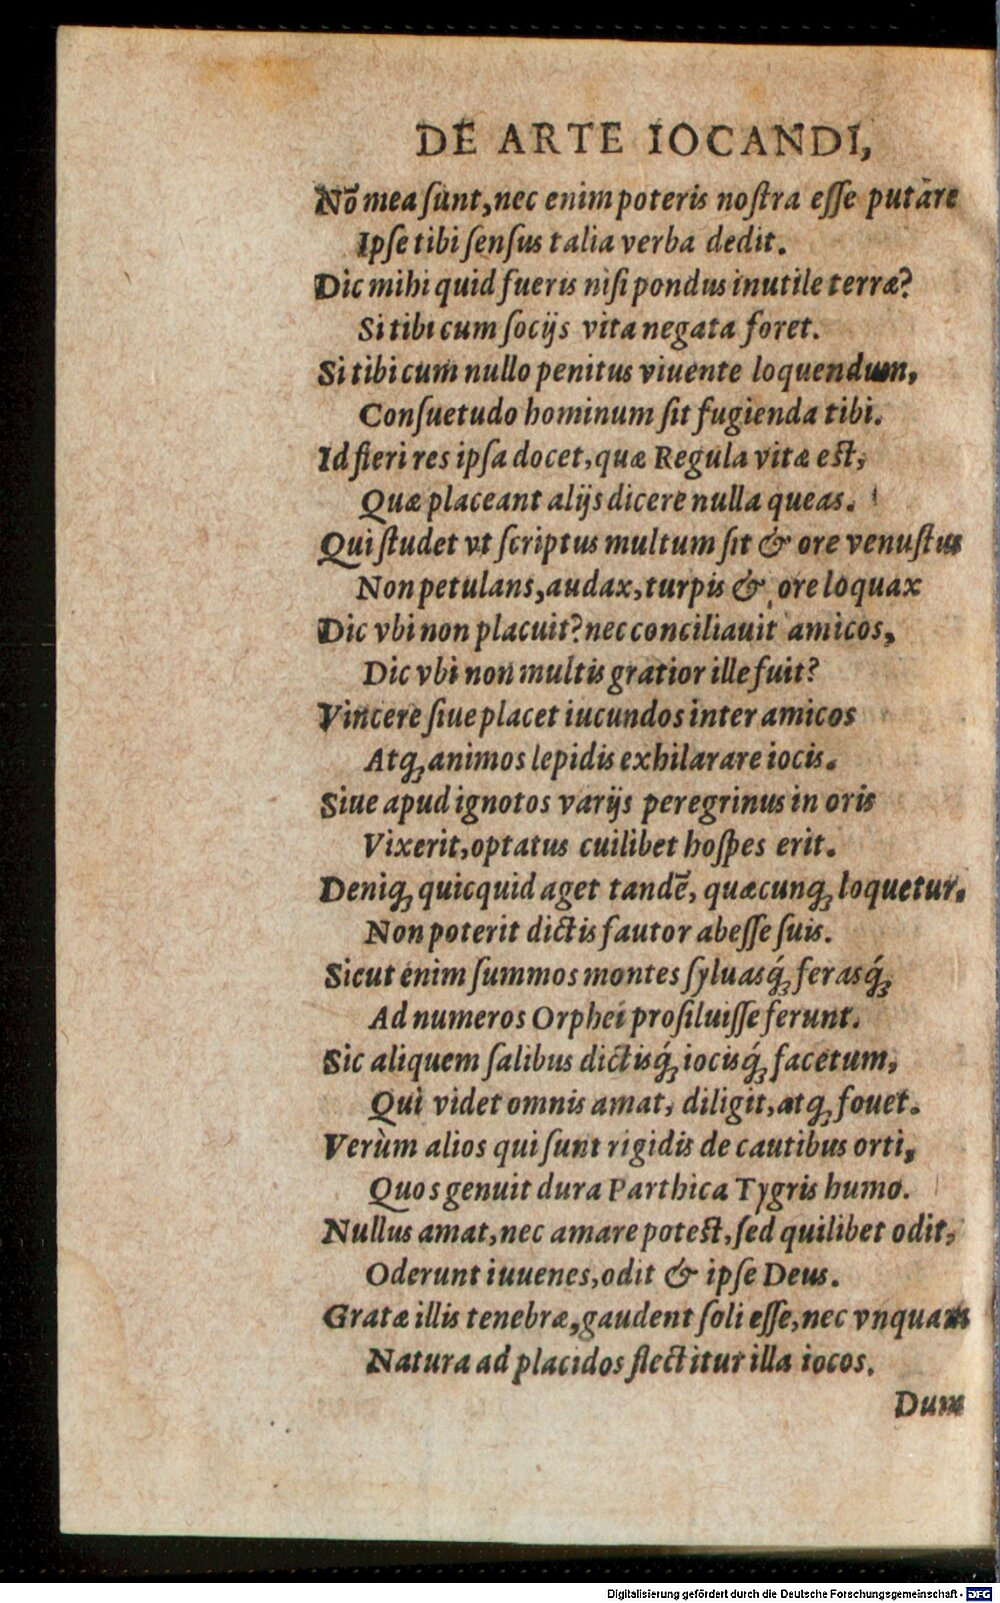 DE ARTE IOCANDI,
Nō mea ſunt, nec enim poteris noſtra eſſe putare
Ipſe tibi ſenſus talia verba dedit.
Dic mihi quid fueris niſi pondus inutile terræ?
Si tibi cum ſocijs vita negata foret.
Si tibi cum nullo penitus viuente loquendum,
Conſuetudo hominum ſit fugienda tibi.
Id fieri res ipſa docet, quæ Regula vitæ eſt,
Quæ placeant alijs dicere nulla queas.
Qui ſtudet vt ſcriptus multum ſit & ore venuſtus
Non petulans, audax, turpis & ore loquax
Dic vbi non placuit? nec conciliauit amicos,
Dic vbi non multis gratior ille fuit?
Vincere ſiue placet iucundos inter amicos
Atq́ꝫ animos lepidis exhilarare iocis.
Siue apud ignotos varijs peregrinus in oris
Vixerit, optatus cuilibet hoſpes erit.
Deniqꝫ quicquid aget tandē, quæcunqꝫ loquetur.
Non poterit dictis fautor abeſſe ſuis.
Sicut enim ſummos montes ſyluasq́ꝫ ferasq́ꝫ
Ad numeros Orphei proſiluiſſe ferunt.
Sic aliquem ſalibus dictisq́ꝫ iocisq́ꝫ facetum,
Qui videt omnis amat, diligit, atqꝫ fouet.
Verùm alios qui ſunt rigidis de cautibus orti,
Quos genuit dura Parthica Tygris humo.
Nullus amat, nec amare poteſt, ſed quilibet odit,
Oderunt iuuenes, odit & ipſe Deus.
Gratæ illis tenebræ, gaudent ſoli eſſe, nec vnquam
Natura ad placidos flectitur illa iocos.
Dum
Digitalisierung gefördert durch die Deutsche Forschungsgemeinschaft - DFG